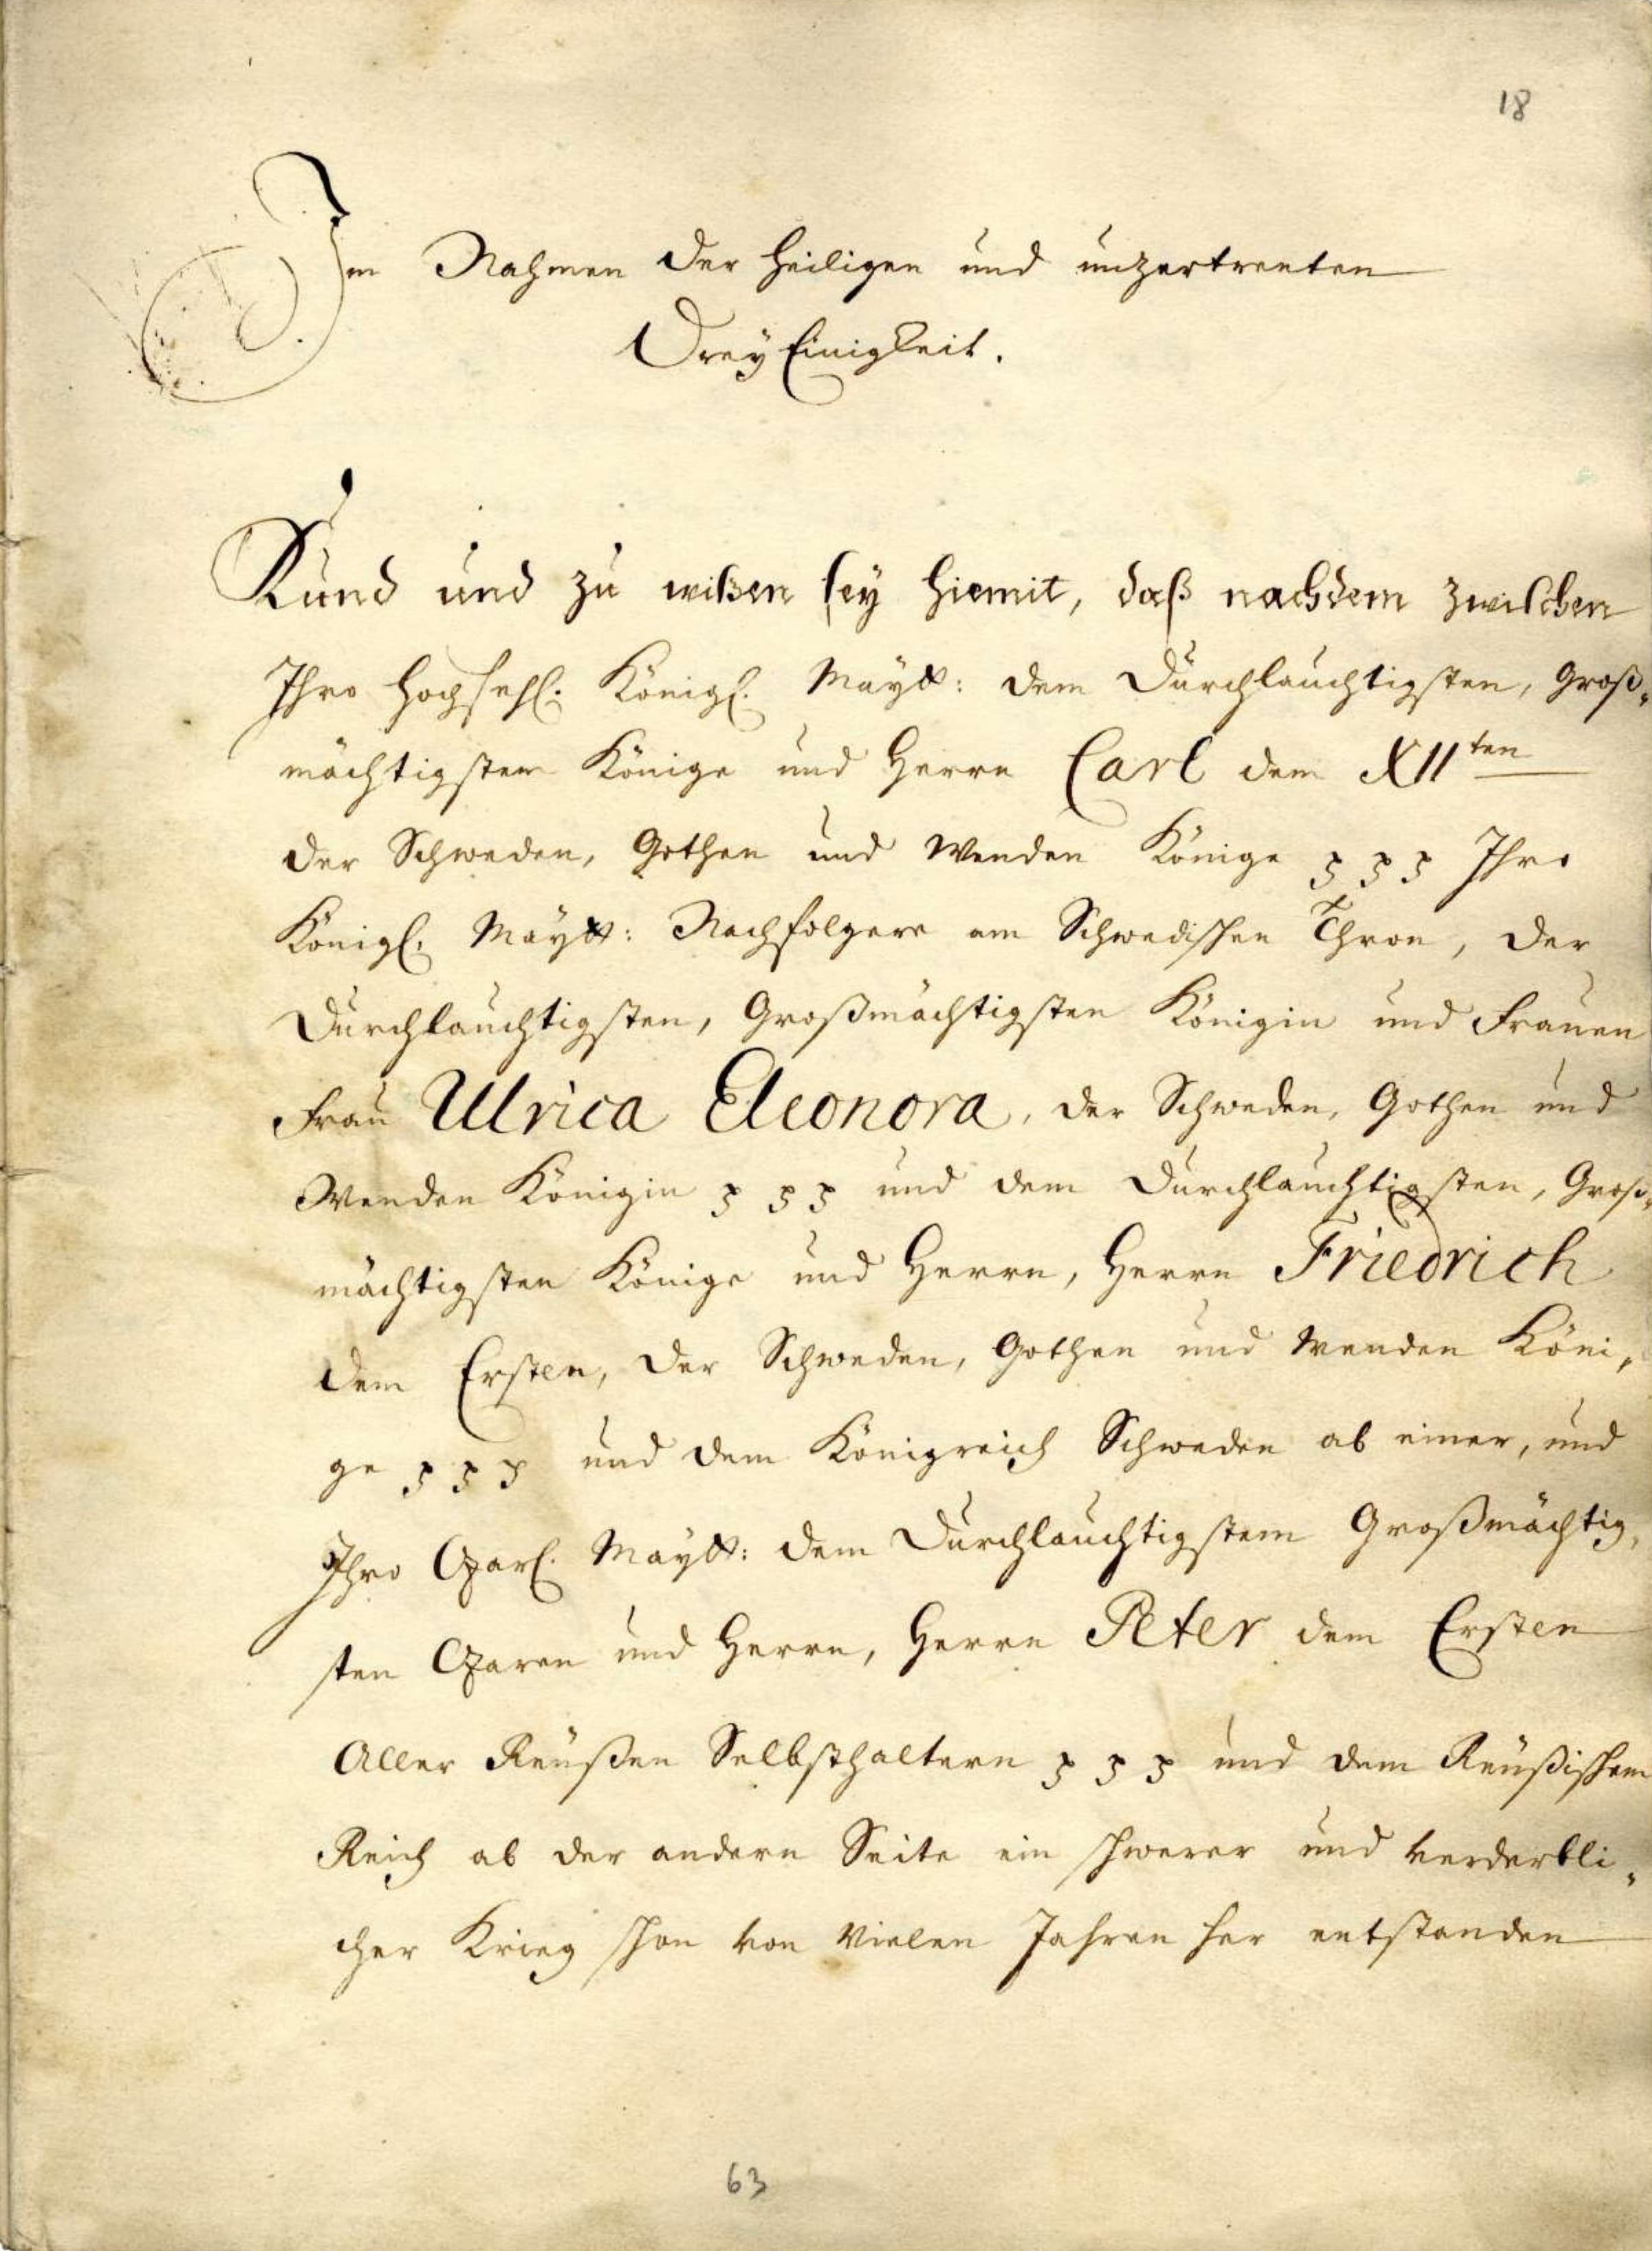 18
Im Nahmen der Heiligen und unzertrenten
DreyEinigkeit.
Kund und zu wißen sey hiemit, daß nachdem zwischen
Ihro Hochseel. Königl. Maytt: dem Durchlauchtigsten, Groß-
mächtigsten Könige und Herrn Carl dem XIIten
der Schweden, Gothen und Wenden Könige p p p Ihro
Königl. Maytt: Nachfolgere am Schwedischen Thron, der
Durchlauchtigsten, Großmächtigsten Königin und Frauen
Frau Ulrica Eleonora, der Schweden, Gothen und
Wenden Königin p p p und dem Durchlauchtigsten, Groß-
mächtigsten Könige und Herrn, Herrn Friedrich
dem Ersten, der Schweden, Gothen und Wenden Köni-
ge p p p und dem Königreich Schweden ab einer, und
Ihro Czarl. Maytt: dem Durchlauchtigstem Großmächtig-
sten Czaren und Herrn, Herrn Peter dem Ersten
Aller Reußen Selbsthaltern p p p und dem Reußischem
Reich ab der andern Seite ein schwerer und verderbli-
cher Krieg schon von vielen Jahren her entstanden
63